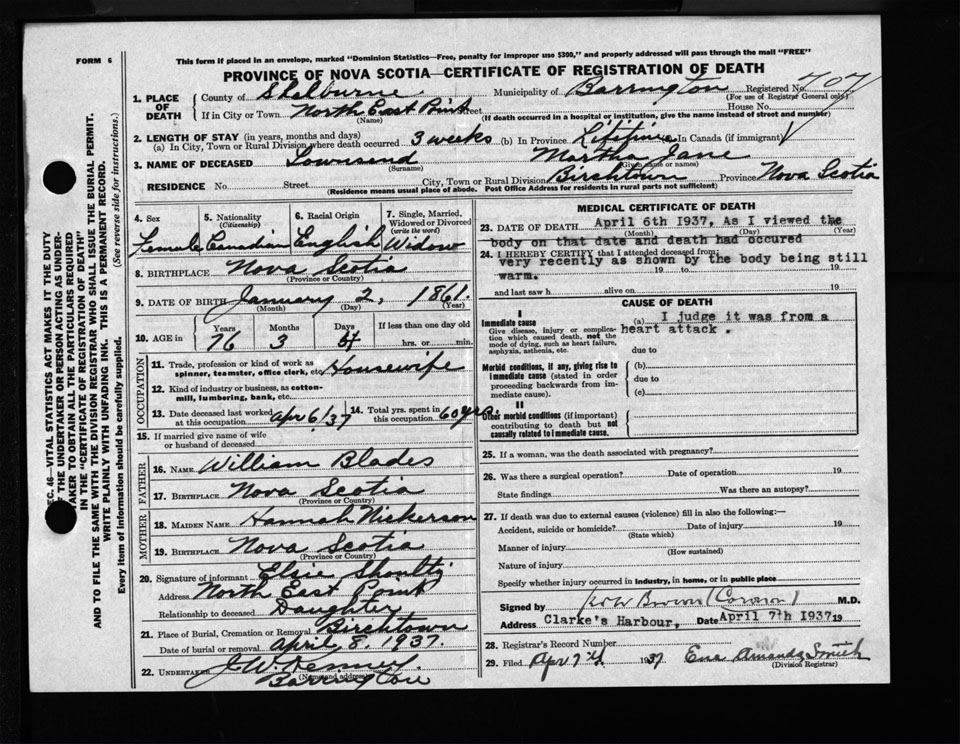 FORM 6
This form if placed in an envelope, marked "Dominion Statistics—Free, penalty for improper use $300," and properly addressed will pass through the mail "FREE"
PROVINCE OF NOVA SCOTIA—CERTIFICATE OF REGISTRATION OF DEATH
1. PLACE OF DEATH
County of Shelburne Municipality of Barrington Registered No. 707
(For use of Registrar General only)
If in City or Town North East Point Street House No.
(Name) (If death occurred in a hospital or institution, give the name instead of street and number)
2. LENGTH OF STAY (in years, months and days)
(a) In City, Town or Rural Division where death occurred 3 weeks (b) In Province Lifetime In Canada (if immigrant)
3. NAME OF DECEASED Townsend Martha Jane
(Surname) (Given name or names)
RESIDENCE No. Street City, Town or Rural Division Birchtown Province Nova Scotia
(Residence means usual place of abode. Post Office Address for residents in rural parts not sufficient)
4. Sex Female
5. Nationality (Citizenship) Canadian
6. Racial Origin English
7. Single, Married, Widowed or Divorced (write the word) Widow
8. BIRTHPLACE Nova Scotia
(Province or Country)
9. DATE OF BIRTH January 2, 1861.
(Month) (Day) (Year)
10. AGE in Years 76 Months 3 Days If less than one day old hrs. or min.
OCCUPATION
11. Trade, profession or kind of work as spinner, teamster, office clerk, etc. Housewife
12. Kind of industry or business, as cotton-mill, lumbering, bank, etc.
13. Date deceased last worked at this occupation Apr 6/37
14. Total yrs. spent in this occupation 60 yrs.
15. If married give name of wife or husband of deceased
FATHER
16. NAME William Blades
17. BIRTHPLACE Nova Scotia
(Province or Country)
MOTHER
18. MAIDEN NAME Hannah Nickerson
19. BIRTHPLACE Nova Scotia
(Province or Country)
20. Signature of informant Elsie
Address North East Point
Relationship to deceased Daughter
21. Place of Burial, Cremation or Removal Birchtown
Date of burial or removal April, 8, 1937.
22. UNDERTAKER J. W.
(Name and address)
Barrington
MEDICAL CERTIFICATE OF DEATH
23. DATE OF DEATH April 6th 1937. As I viewed the
(Month) (Day) (Year)
body on that date and death had occured
24. I HEREBY CERTIFY that I attended deceased from:
very recently as shown by the body being still
19 to 19
warm.
and last saw h alive on 19
CAUSE OF DEATH
I
Immediate cause (a) I judge it was from a
Give disease, injury or complication which caused death, not the mode of dying, such as heart failure, asphyxia, asthenia, etc.
heart attack.
due to
Morbid conditions, if any, giving rise to immediate cause (stated in order proceeding backwards from immediate cause).
(b)
due to
(c)
II
Other morbid conditions (if important) contributing to death but not causally related to immediate cause.
25. If a woman, was the death associated with pregnancy?
26. Was there a surgical operation? Date of operation 19
State findings Was there an autopsy?
27. If death was due to external causes (violence) fill in also the following:—
Accident, suicide or homicide? Date of injury 19
(State which)
Manner of injury
(How sustained)
Nature of injury
Specify whether injury occurred in industry, in home, or in public place
Signed by Brown (Coroner) M.D.
Address Clarke's Harbour, Date April 7th 1937 19
28. Registrar's Record Number
29. Filed Apr 7th 1937 Ena Amanda Smith
(Division Registrar)
SEC. 46—VITAL STATISTICS ACT MAKES IT THE DUTY
OF THE UNDERTAKER OR PERSON ACTING AS UNDER-
TAKER TO OBTAIN ALL THE PARTICULARS REQUIRED
IN THE "CERTIFICATE OF REGISTRATION OF DEATH"
AND TO FILE THE SAME WITH THE DIVISION REGISTRAR WHO SHALL ISSUE THE BURIAL PERMIT.
WRITE PLAINLY WITH UNFADING INK. THIS IS A PERMANENT RECORD.
Every item of information should be carefully supplied. (See reverse side for instructions.)